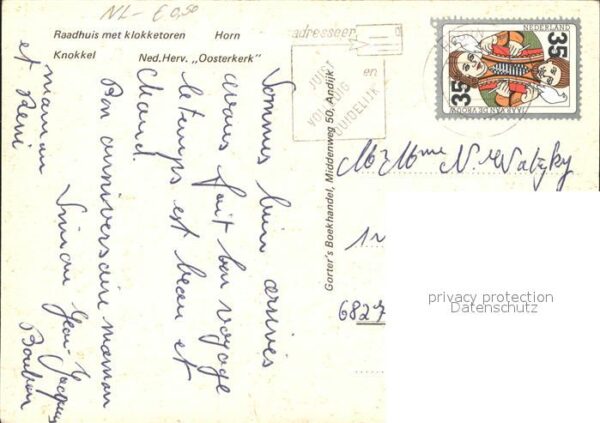 NL- € 0,50
Raadhuis met klokketoren Horn
Knokkel Ned.Herv. „Oosterkerk"
Sommes bien arrivés
avons fait bon voyage
le temps est beau et
chaud.
Bon anniversaire maman
Simon Jean-Jacques
maman
et Rémi
Gorter's Boekhandel, Middenweg 50, Andijk
adresseer
JUIST
VOLLEDIG
en
DUIDELIJK
NEDERLAND
35
35
JAAR VAN DE VROUW
M & Mme N.
6827
privacy protection
Datenschutz